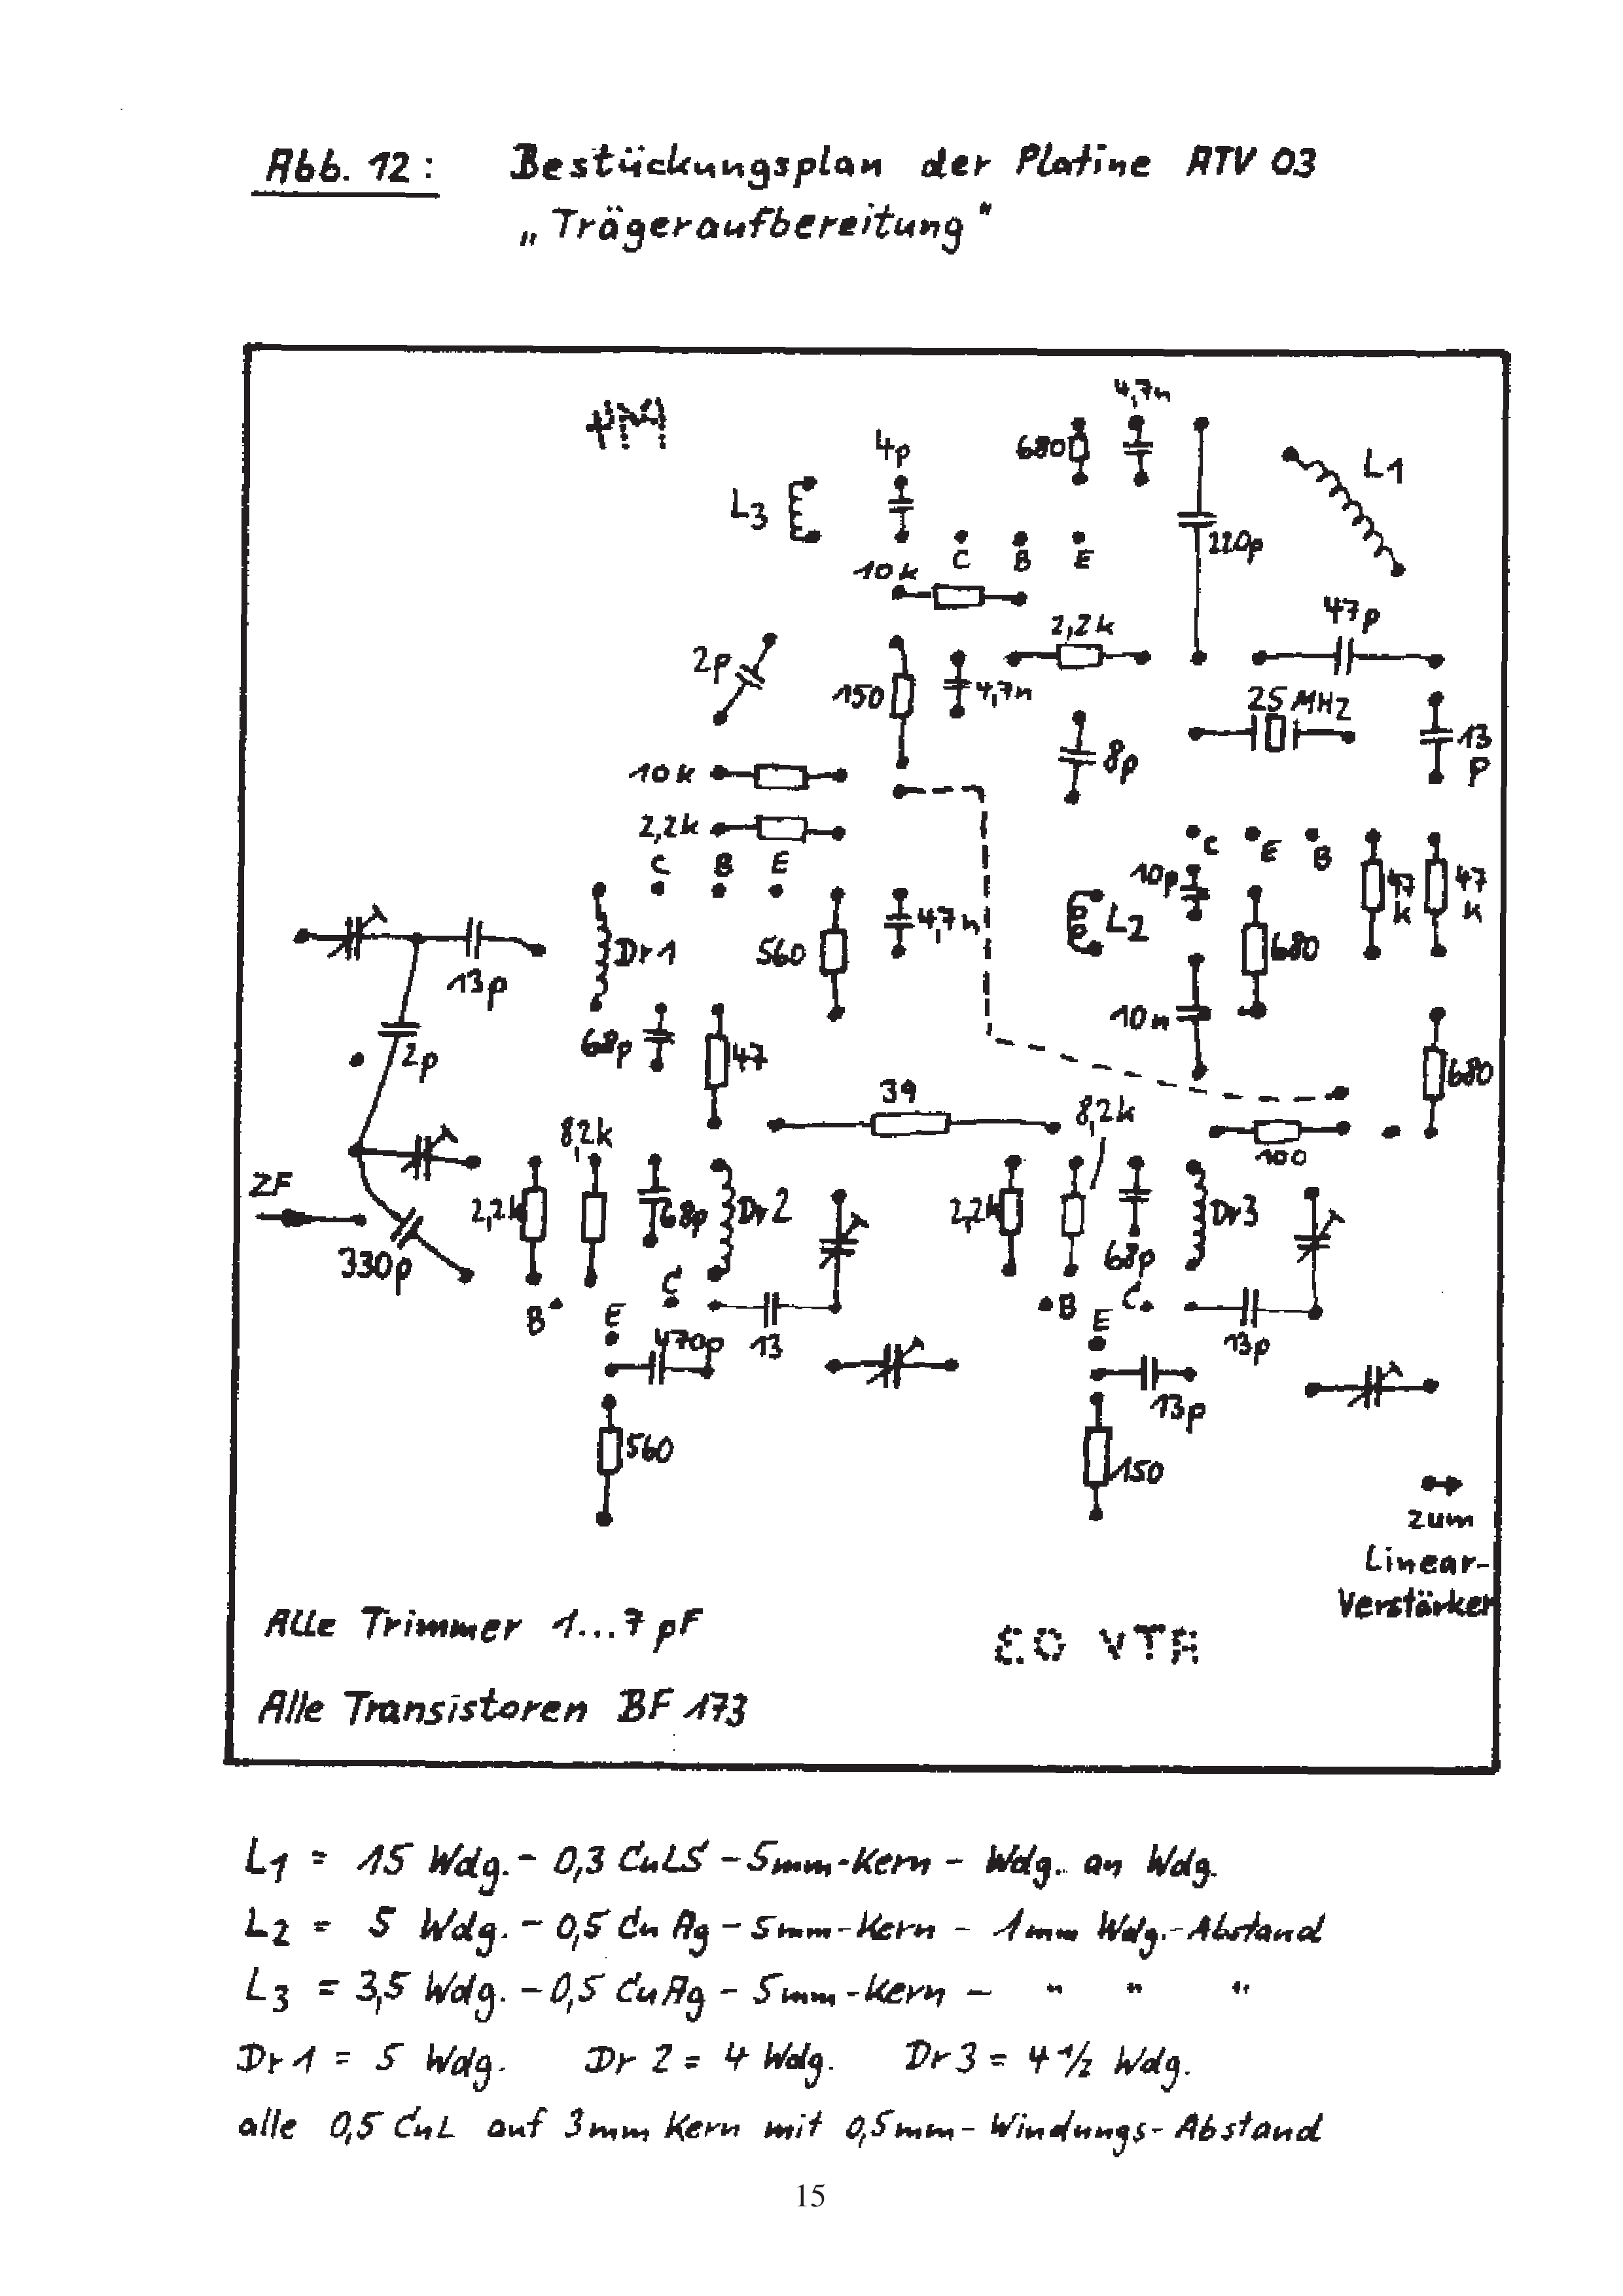 Abb. 12: Bestückungsplan der Platine ATV 03
„Trägeraufbereitung"
4,7n
4p
680
L1
L3
220p
C B E
10k
47p
2,2k
2p
150
4,7n
25 MHz
13
p
8p
10k
2,2k
C B E
C E B
10p
47
k
47
k
L2
4,7n
Dr1
560
680
13p
10n
68p
47
2p
680
39
8,2k
8,2k
100
ZF
2,2k
68p
Dr2
2,2k
Dr3
68p
330p
C
C
B
E
B
E
470p
13
13p
13p
560
150
zum
Linear-
Verstärker
Alle Trimmer 1...7 pF
Alle Transistoren BF 173
L1 = 15 Wdg. - 0,3 CuLS - 5mm-Kern - Wdg. an Wdg.
L2 = 5 Wdg. - 0,5 CuAg - 5mm-Kern - 1mm Wdg.-Abstand
L3 = 3,5 Wdg. - 0,5 CuAg - 5mm-Kern - " " "
Dr1 = 5 Wdg. Dr 2 = 4 Wdg. Dr3 = 4 1/2 Wdg.
alle 0,5 CuL auf 3mm Kern mit 0,5mm-Windungs-Abstand
15